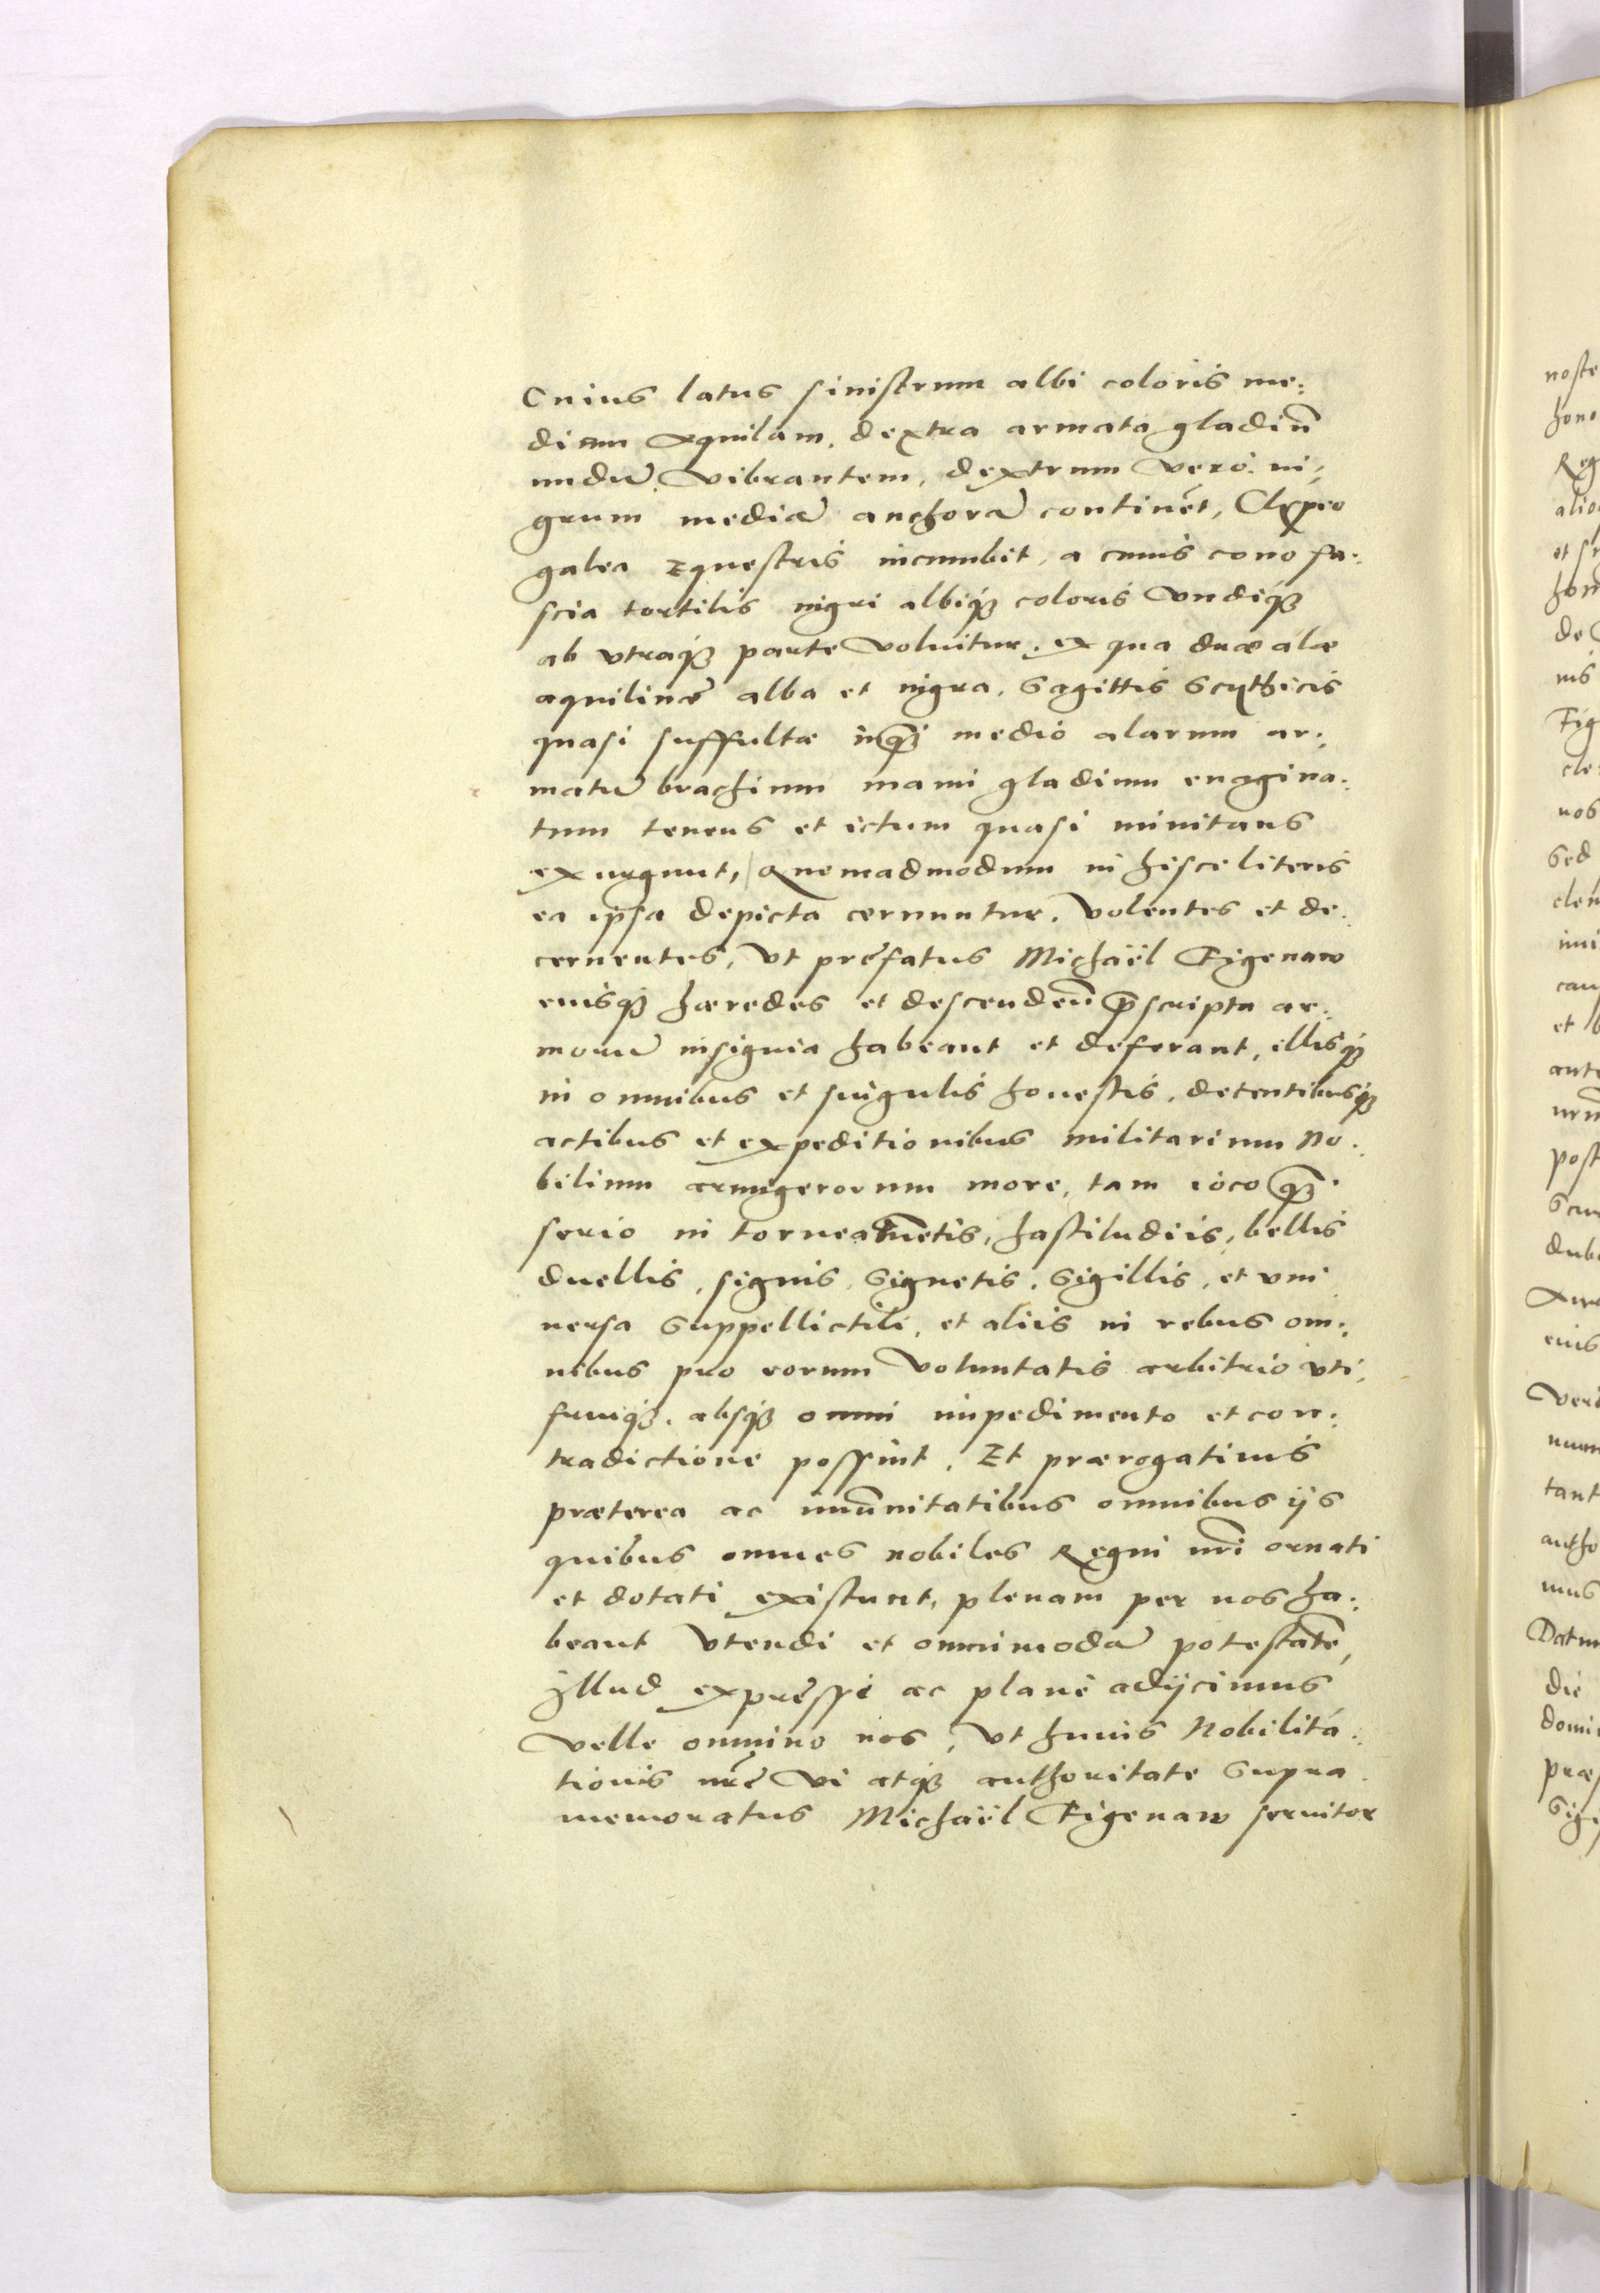 Cuius latus sinistrum albi coloris me:
diam aquilam, dextra armata gladiū
nudū vibrantem, dextrum vero ni,
grum mediā anchorā continēt, Clypeo
galea Equestris incumbit, a cuius cono fa:
scia tortilis nigri albiq3 coloris vndiq3
ab vtraq3 parte voluitur, ex qua duæ alæ
aquilinæ alba et nigra, Sagittis Scythicis
quasi suffultæ inq3 medio alarum ar:
matū brachium manu gladium euagina:
tum tenens et ictum quasi minitans
exurgunt, Quemadmodum in hisce literis
ea ipsa depicta cernuntur. Volentes et de:
cernentes, vt præfatus Michaël Tigenaw
eiusq3 hæredes et descendeñ p̄scripta ar:
morū insignia habeant et deferant, illisq3
in omnibus et singulis honestis, decentibusq3
actibus et expeditionibus militarium No:
bilium armigerorum more, tam ioco q̄3
serio in torneamētis, hastiludiis, bellis
duellis, signis, Signetis, Sigillis, et vni
uersa Suppellictili, et aliis in rebus om:
nibus pro eorum voluntatis arbitrio vti,
fruiq3, absq3 omni impedimento et con:
tradictione possint. Et prærogatiuis
præterea ac imūnitatibus omnibus ijs
quibus omnes nobiles Regni nr̄i ornati
et dotati existunt, plenam per nos ha:
beant vtendi et omnimodā potestatē,
Illud expresse ac plane adijcimus
velle omnino nos, vt huius Nobilita:
tionis nr̄e vi atq3 authoritate Supra
memoratus Michaël Tigenaw seruitor